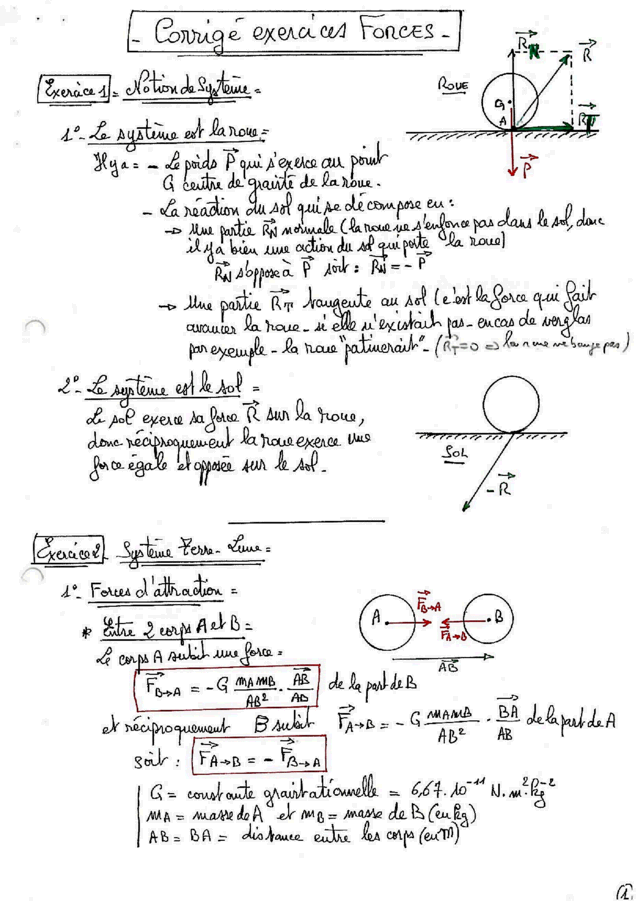 - Corrigé exercices FORCES -
Exercice 1 = Notion de Système =
1°- Le système est la roue =
Il y a = - Le poids P⃗ qui s'exerce au point
G centre de gravité de la roue.
- La réaction du sol qui se décompose en :
→ Une partie R⃗N normale (la roue ne s'enfonce pas dans le sol, donc
il y a bien une action du sol qui porte la roue)
R⃗N s'oppose à P⃗ soit : R⃗N = - P⃗
→ Une partie R⃗T tangente au sol (c'est la force qui fait
avancer la roue - si elle n'existait pas - en cas de verglas
par exemple - la roue "patinerait" - (R⃗T = 0 ⇒ la roue ne bouge pas)
ROUE
R⃗N
R⃗
G
A
R⃗T
P⃗
2°- Le système est le sol =
Le sol exerce sa force R⃗ sur la roue,
donc réciproquement la roue exerce une
force égale et opposée sur le sol -
SOL
-R⃗
Exercice 2 - Système Terre - Lune =
1°- Forces d'attraction =
* Entre 2 corps A et B =
Le corps A subit une force =
F⃗B→A = - G mA mB / AB² . AB⃗ / AB de la part de B
et réciproquement B subit F⃗A→B = - G mA mB / AB² . BA⃗ / AB de la part de A
soit : F⃗A→B = - F⃗B→A
A
F⃗B→A
F⃗A→B
B
AB⃗
G = constante gravitationnelle = 6,67. 10⁻¹¹ N.m².kg⁻²
mA = masse de A et mB = masse de B (en kg)
AB = BA = distance entre les corps (en m)
①